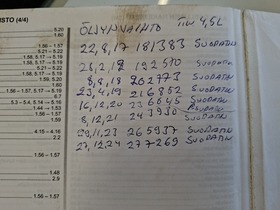 ISTO (4/4)
5.20
1.60
1.56 – 1.57
5.21 – 5.22
1.56, 5.17 → 5.19
5.21 – 5.22
1.56, 5.17 → 5.19
5.20
1.56 – 1.57, 5.17 → 5.19
5.20
5.3 – 5.4, 5.14 → 5.16
1.44 → 1.53
1.56 – 1.57
1.59
4.15 – 4.16
2.2
1.56 – 1.57
1.48
2.9
1.56 – 1.57
ÖLJYNVAIHTO 4,5L
22,8,17 181383 SUODATIN
28,2,18 192570 SUODATIN
8,8,18 202973 SUODATIN
23,4,19 216852 SUODATIN
16,12,20 236645 SUODATIN
8,12,21 243930 SUODATIN
29,11,23 265937 SUODATIN
27,12,24 277269 SUODATIN